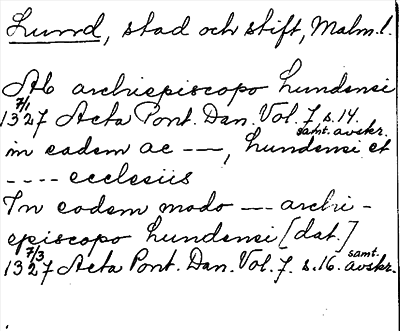 Lund, stad och stift, Malm.l.
Ab archiepiscopo Lundensi
1327 7/1 Acta Pont. Dan. Vol. 7, s. 14.
samt. avskr.
in eadem ac ---, Lundensi et
---- ecclesiis
In eodem modo --- archi-
episcopo Lundensi [dat.]
1327 7/3 Acta Pont. Dan. Vol. 7. s. 16. samt. avskr.